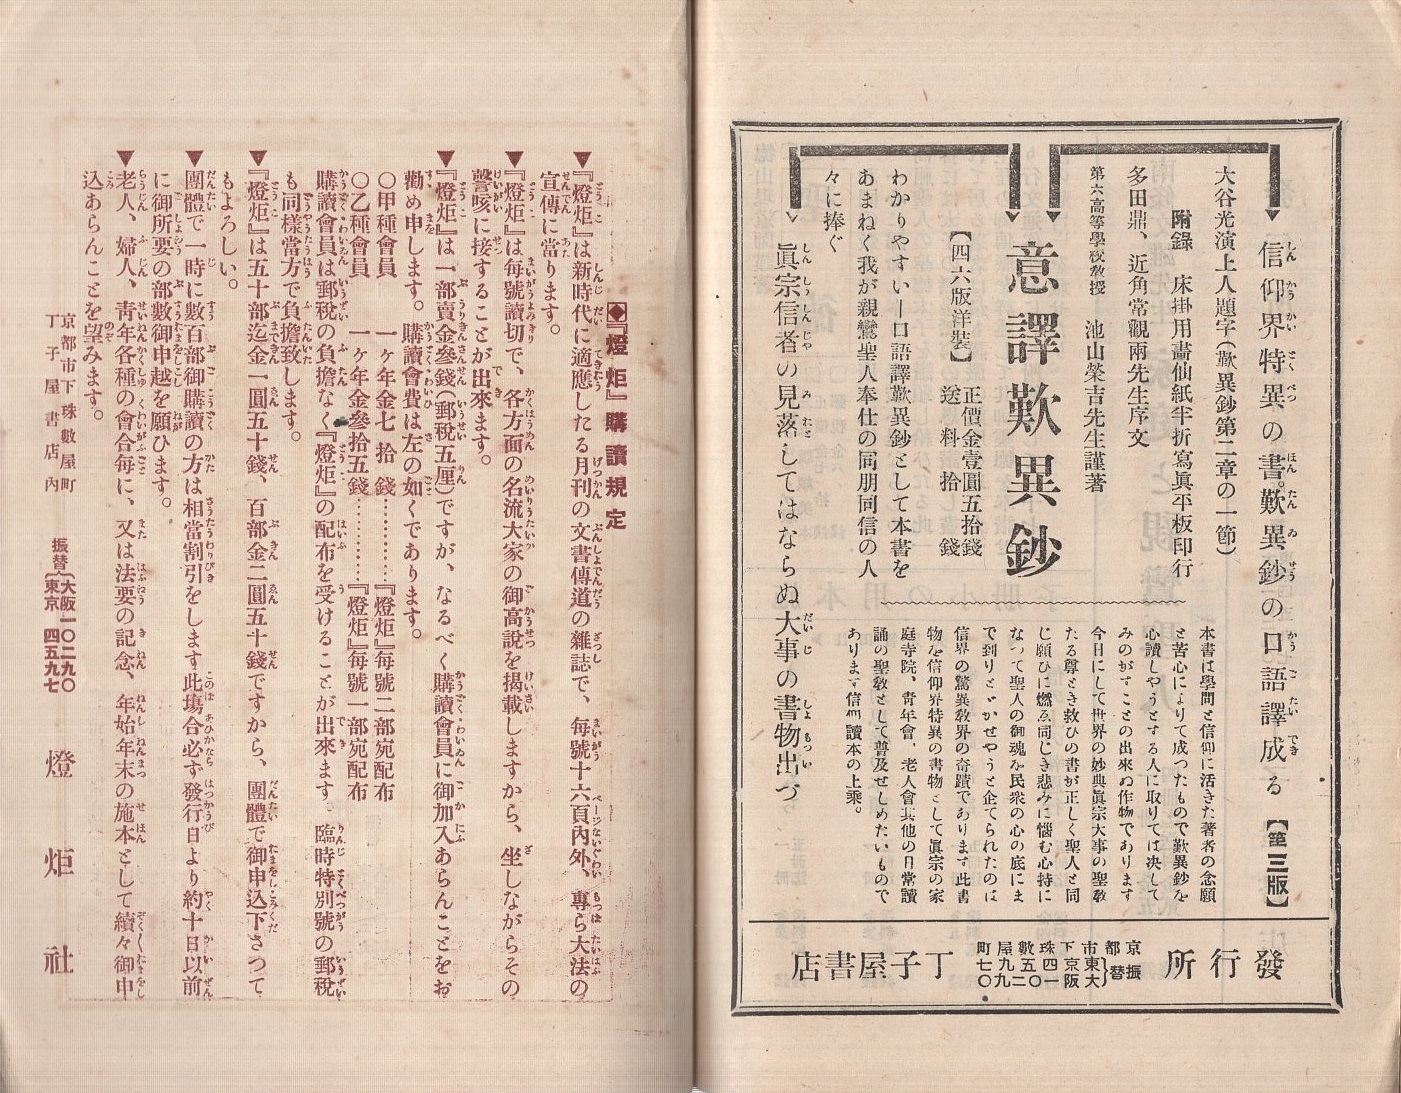 信仰界特異の書。歎異鈔の口語譯成る【第三版】
大谷光演上人題字(歎異鈔第二章の一節)
附錄 床掛用畵仙紙半折寫眞平板印行
多田鼎、近角常觀兩先生序文
第六高等學校敎授 池山榮吉先生謹著
意譯歎異鈔
【四六版洋裝】 正價金壹圓五拾錢
送料 拾錢
わかりやすい―口語譯歎異鈔として本書を
あまねく我が親鸞聖人奉仕の同朋同信の人
々に捧ぐ
眞宗信者の見落してはならぬ大事の書物出づ
本書は學問と信仰に活きた著者の念願
と苦心によりて成つたもので歎異鈔を
心讀しやうとする人に取りては決して
みのがすことの出來ぬ作物であります
今日にして世界の妙典眞宗大事の聖敎
たる尊とき救ひの書が正しく聖人と同
じ願ひに燃ゑ同じき悲みに惱む心持に
なつて聖人の御魂を民衆の心の底にま
で到りとゞかせやうと企てられたのは
信界の驚異敎界の奇蹟であります此書
物を信仰界特異の書物として眞宗の家
庭寺院、靑年會、老人會其他の日常讀
誦の聖敎として普及せしめたいもので
あります信仰讀本の上乘。
發行所
京都市下珠數屋町
振替{東京四五九九七
大阪一〇二九〇
丁子屋書店
◆『燈炬』購讀規定
▼『燈炬』は新時代に適應したる月刊の文書傳道の雜誌で、每號十六頁內外、專ら大法の
宣傳に當ります。
▼『燈炬』は每號讀切で、各方面の名流大家の御高說を揭載しますから、坐しながらその
謦咳に接することが出來ます。
▼『燈炬』は一部賣金參錢(郵稅五厘)ですが、なるべく購讀會員に御加入あらんことをお
勸め申します。購讀會費は左の如くであります。
〇甲種會員 一ヶ年金七拾錢………『燈炬』每號二部宛配布
〇乙種會員 一ヶ年金參拾五錢………『燈炬』每號一部宛配布
購讀會員は郵稅の負擔なく『燈炬』の配布を受けることが出來ます 臨時特別號の郵稅
も同樣當方で負擔致します。
▼『燈炬』は五十部迄金一圓五十錢、百部金二圓五十錢ですから、團體で御申込下さつて
もよろしい。
▼團體で一時に數百部御購讀の方は相當割引をします此塲合必ず發行日より約十日以前
に御所要の部數御申越を願ひます。
▼老人、婦人、靑年各種の會合每に、又は法要の記念、年始年末の施本として續々御申
込あらんことを望みます。
京都市下珠數屋町
丁子屋書店內
振替{大阪一〇二九〇
東京四五九九七
燈炬社